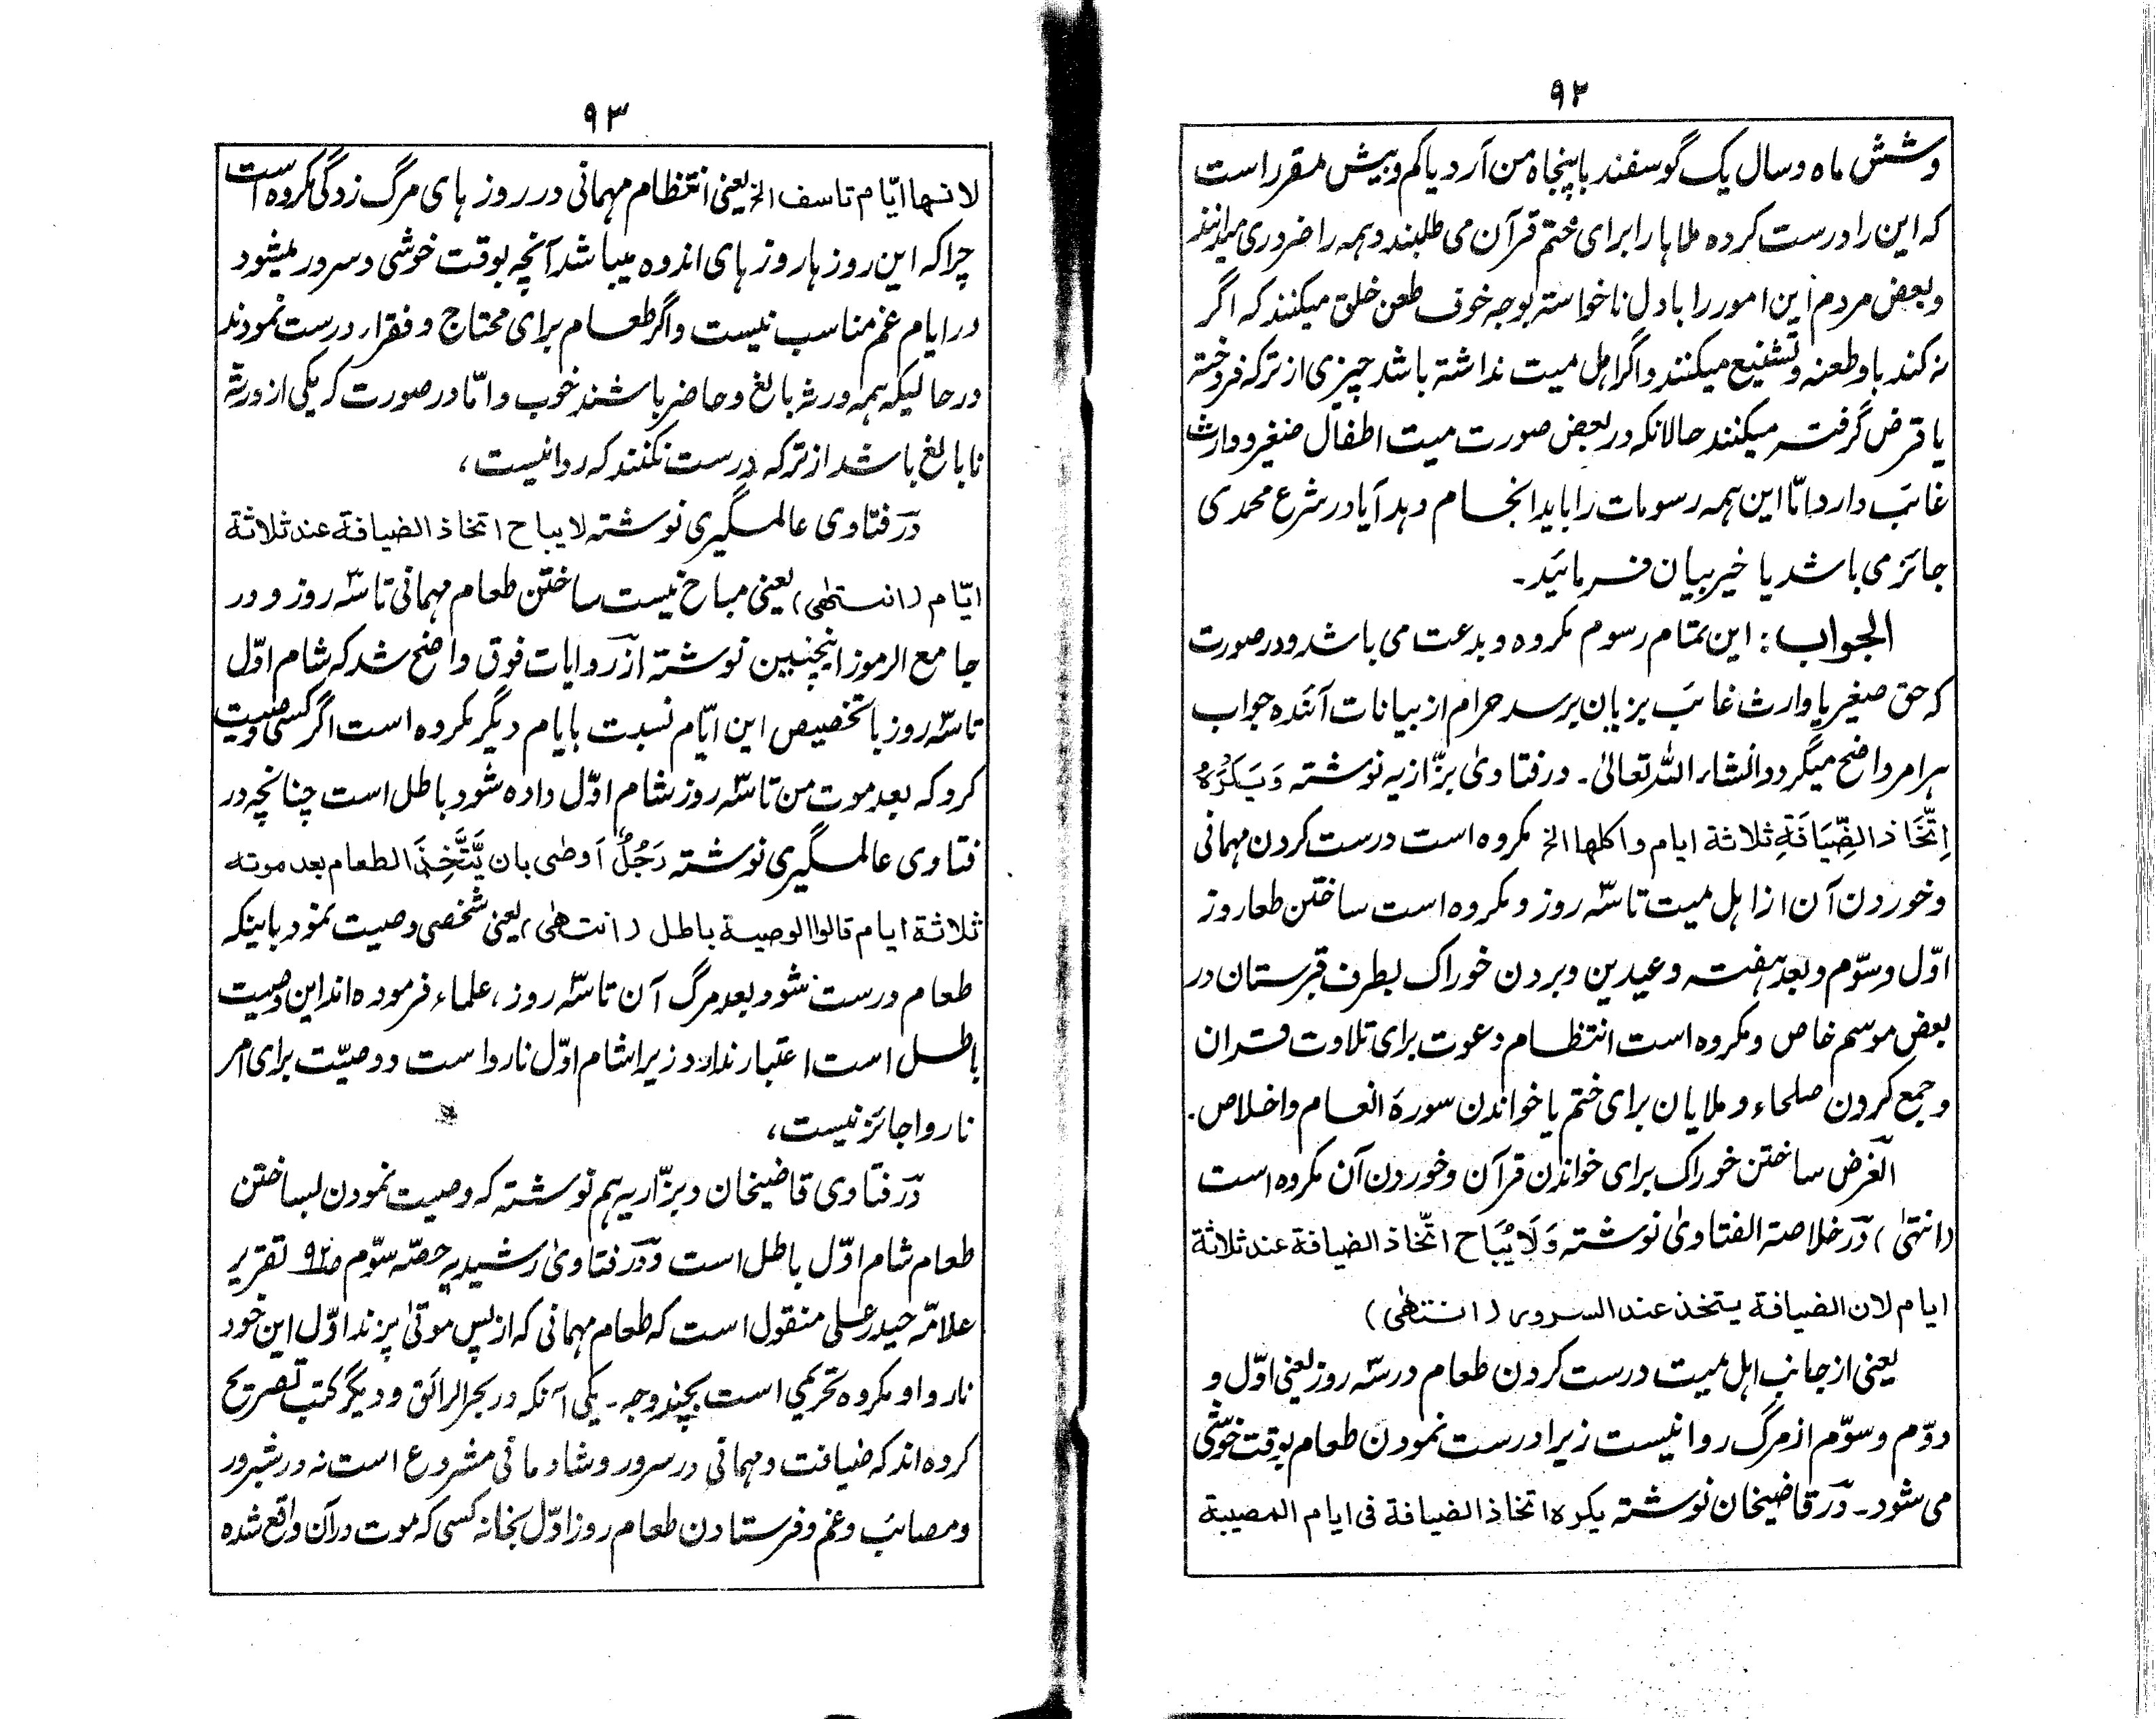 ۹۲
وشش ماه وسال یک گوسفند با پنجاه من آرد یا کم و بیش مقرر است
که این را درست کرده ملا ها را برای ختم قرآن می طلبند و همه را ضروری میدانند
و بعض مردم این امور را با دل ناخواسته بوجه خوف طعن خلق میکنند که اگر
نه کند با و طعنه و تشنیع میکنند و اگر اهل میت نداشته باشد چیزی از ترکه فروخته
یا قرض گرفته میکنند حالانکه در بعض صورت میت اطفال صغیر و وارث
غائب دارد امّا این همه رسومات را باید انجام دهد آیا در شرع محمدی
جائز می باشد یا خیر بیان فرمائید۔
الجواب: این تمام رسوم مکروه و بدعت می باشد ودر صورت
که حق صغیر یا وارث غائب بزیان برسد حرام از بیانات آئنده جواب
هر امر واضح میگردد انشاء الله تعالیٰ۔ در فتاویٰ بزّازیه نوشته وَیَکْرَهُ
اِتِّخَاذ الضِّیَافَةِ ثلاثة ایام واکلها الخ مکروه است درست کردن مهمانی
وخوردن آن از اهل میت تا سه روز و مکروه است ساختن طعام روز
اوّل وسوّم وبعد هفته وعیدین وبردن خوراک بطرف قبرستان در
بعض موسم خاص ومکروه است انتظام دعوت برای تلاوت قرآن
وجمع کردن صلحاء و ملایان برای ختم یا خواندن سورۀ انعام واخلاص.
الغرض ساختن خوراک برای خواندن قرآن وخوردن آن مکروه است
(انتهیٰ) در خلاصة الفتاویٰ نوشته وَلَا یُبَاح اتّخاذ الضیافة عند ثلاثة
ایام لان الضیافة یتخذ عند السرور (انتهٰی)
یعنی از جانب اهل میت درست کردن طعام در سه روز یعنی اوّل و
دوّم وسوّم از مرگ روا نیست زیرا درست نمودن طعام بوقت خوشی
می شود۔ در قاضیخان نوشته یکره اتخاذ الضیافة فی ایام المصیبة
۹۳
لانها ایّام تاسف الخ یعنی انتظام مهمانی در روز های مرگ زدگی مکروه است
چرا که این روز ها روز های اندوه میباشد آنچه بوقت خوشی وسرور میشود
در ایام غم مناسب نیست واگر طعام برای محتاج وفقراء درست نمودند
در حالیکه همه ورثه بالغ وحاضر باشند خوب وامّا در صورت که یکی از ورثه
نابالغ باشد از ترکه درست نکنند که روا نیست،
در فتاوی عالمگیری نوشته لا یباح اتخاذ الضیافة عند ثلاثة
ایّام (انتهٰی) یعنی مباح نیست ساختن طعام مهمانی تا سه روز و در
جامع الرموز اینچنین نوشته از روایات فوق واضح شد که شام اوّل
تا سه روز با تخصیص این ایّام نسبت بایام دیگر مکروه است اگر کسی وصیت
کرد که بعد موت من تا سه روز شام اوّل داده شود باطل است چنانچه در
فتاوی عالمگیری نوشته رَجُلٌ اَوصٰی بان یَّتَّخِذَ الطعام بعد موته
ثلاثة ایام قالوا الوصیة باطل (انتهٰی) یعنی شخصی وصیت نمود باینکه
طعام درست شود بعد مرگ آن تا سه روز، علماء فرموده اند این وصیت
باطل است اعتبار ندارد زیرا شام اوّل ناروا است و وصیّت برای امر
ناروا جائز نیست،
در فتاوی قاضیخان وبزّازیه هم نوشته که وصیت نمودن بساختن
طعام شام اوّل باطل است ودر فتاویٰ رشیدیه حصّه سوّم ص۹۲ تقریر
علامّه حیدر علی منقول است که طعام مهمانی که از پس موتیٰ پزند اوّل این خود
ناروا و مکروه تحریمی است بچند وجه۔ یکی آنکه در بحر الرائق و دیگر کتب تصریح
کرده اند که ضیافت ومهمانی در سرور وشادمانی مشروع است نه در شرور
ومصائب وغم وفرستادن طعام روز اوّل بخانه کسی که موت در آن واقع شده